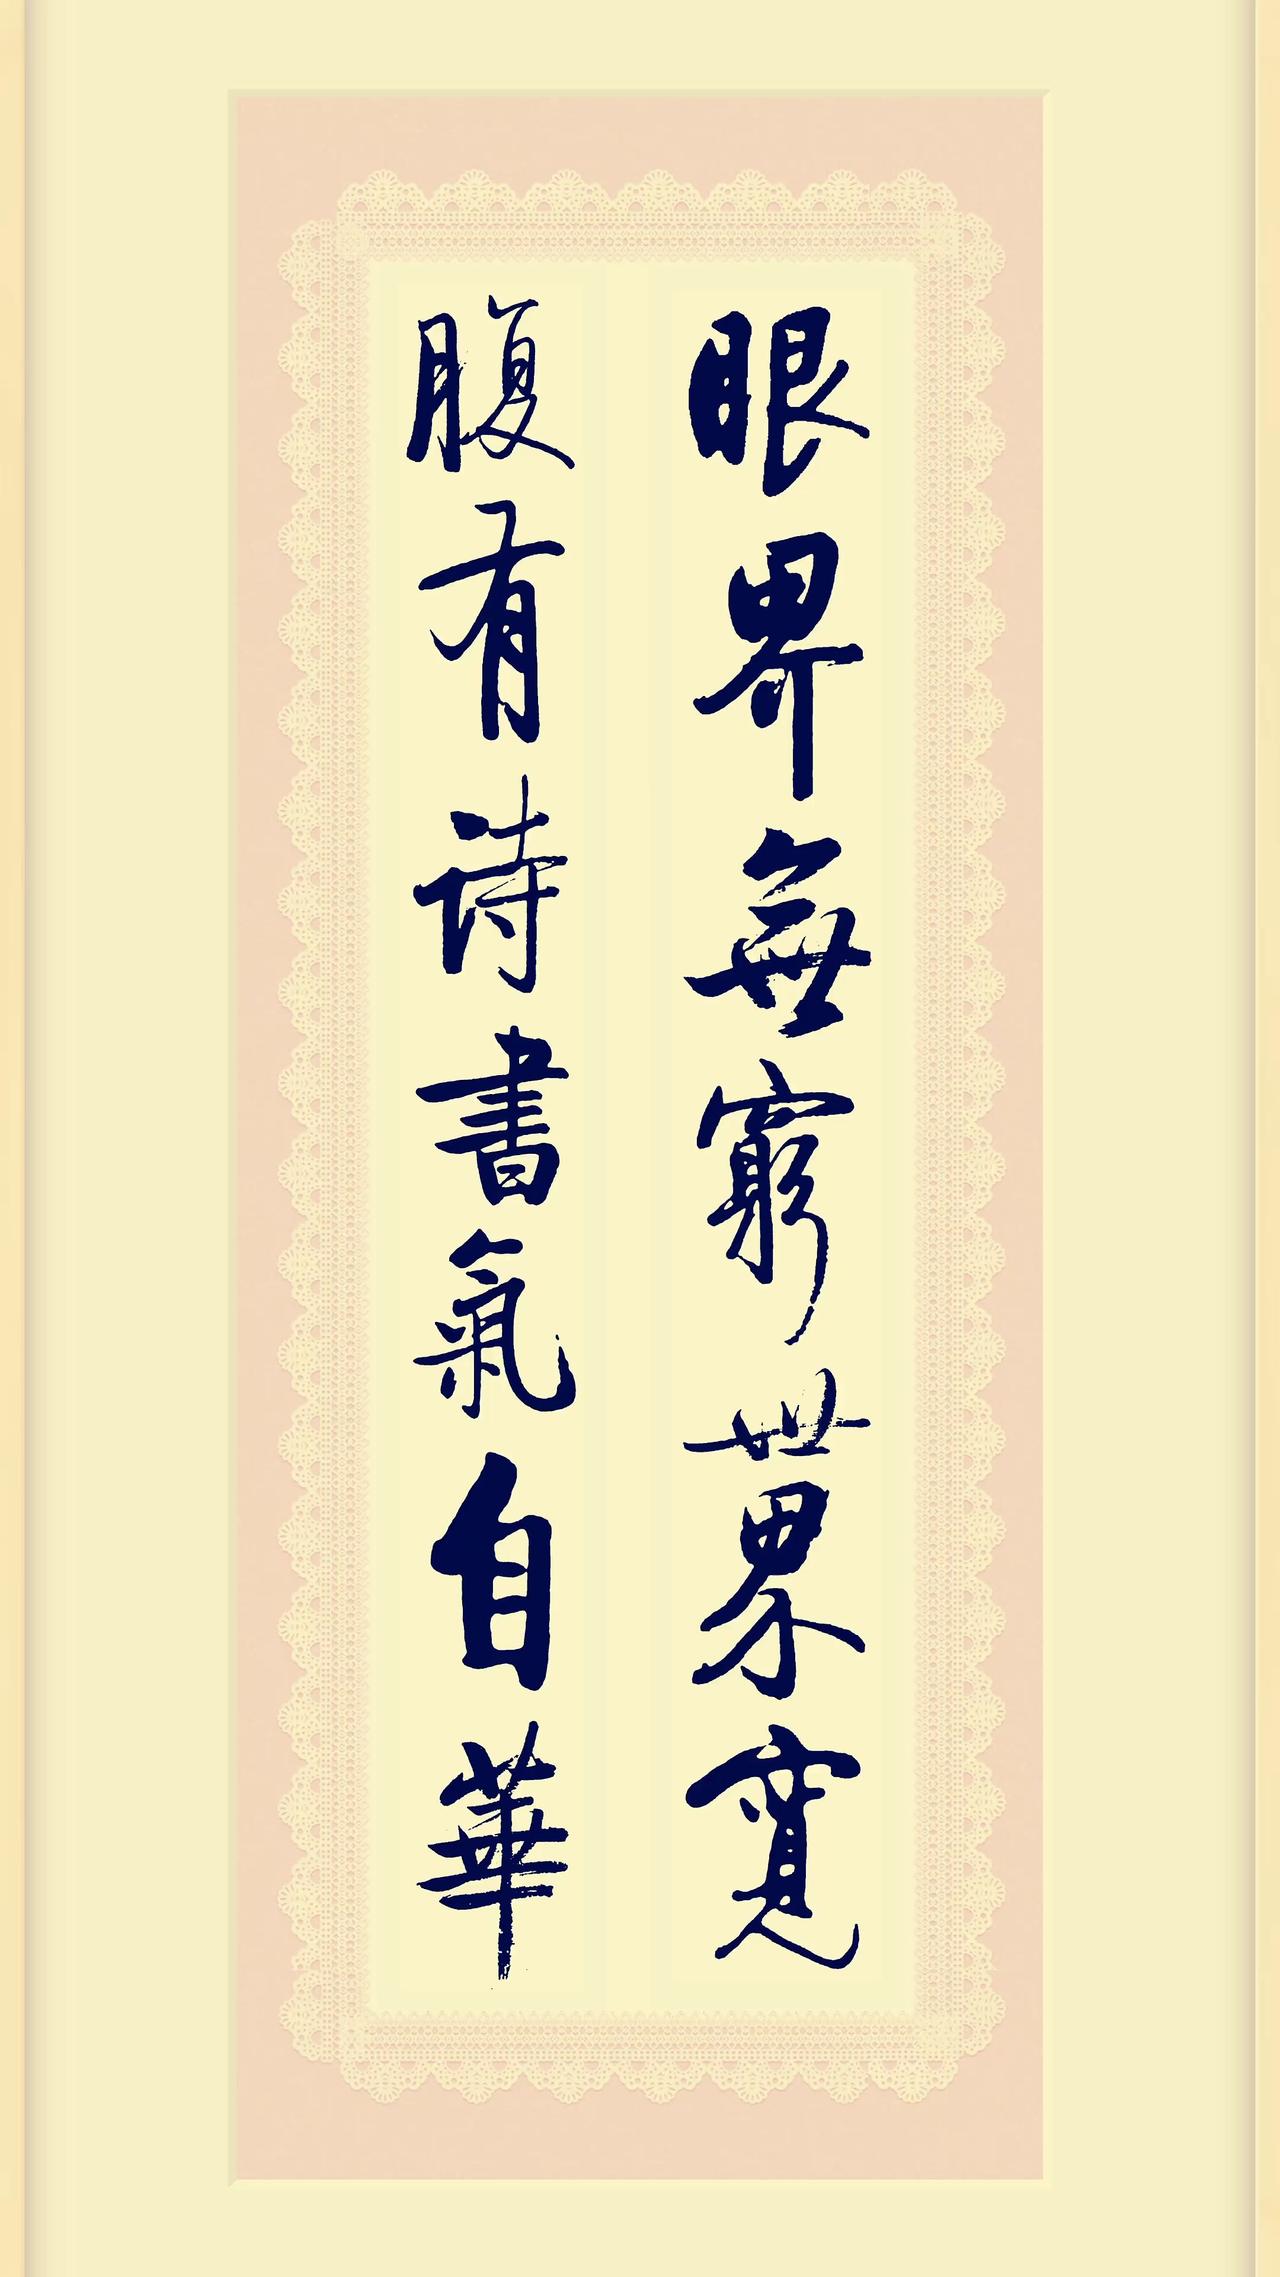 眼界無窮世界寬
腹有诗書氣自華